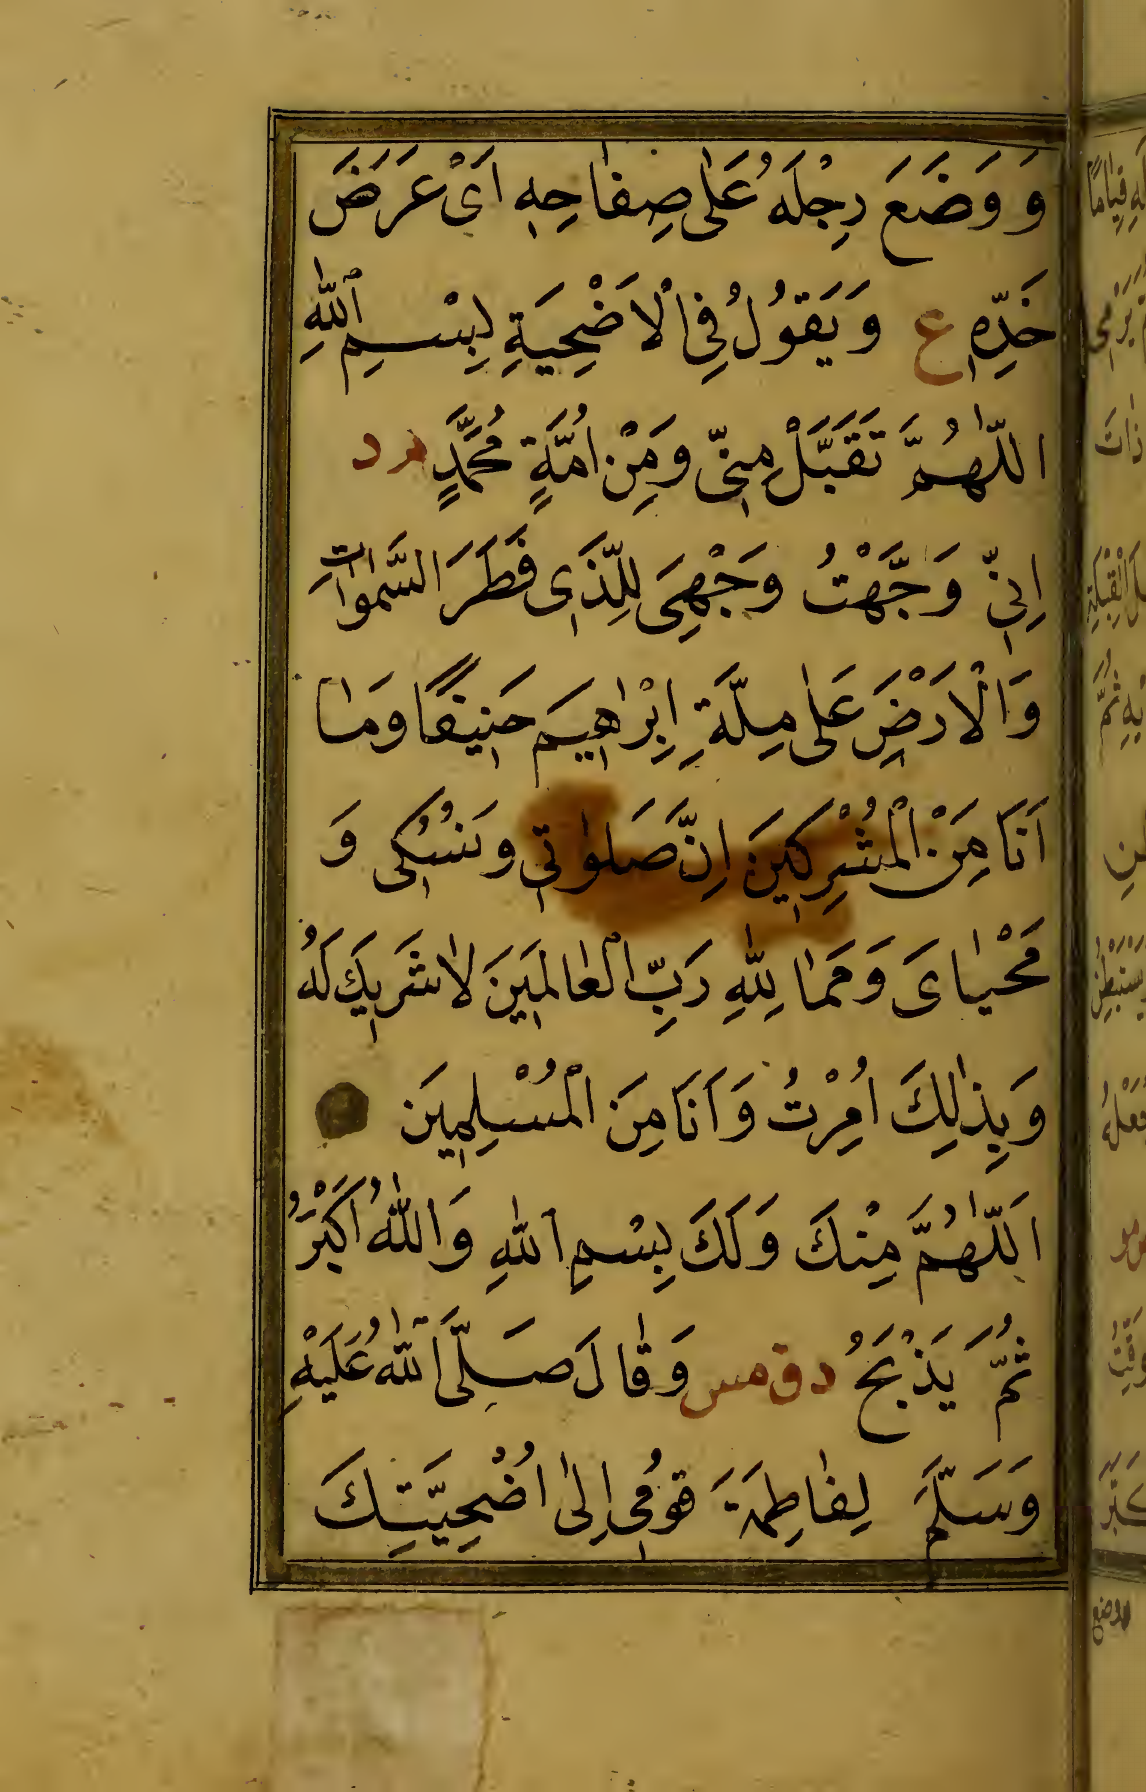 وَوَضَعَ رِجْلَهُ عَلٰى صِفَاحِهِ اَىْ عَرَضَ
خَدِّهِ ع وَيَقُولُ فِى الْاَضْحِيَةِ بِسْمِ اللّٰهِ
اللّٰهُمَّ تَقَبَّلْ مِنِّى وَمِنْ اُمَّةِ مُحَمَّدٍ م د
اِنِّى وَجَّهْتُ وَجْهِىَ لِلَّذِى فَطَرَ السَّمٰوَاتِ
وَالْاَرْضَ عَلٰى مِلَّةِ اِبْرٰاهِيمَ حَنِيفًا وَمَا
اَنَا مِنَ الْمُشْرِكِينَ اِنَّ صَلٰوتِى وَنُسُكِى وَ
مَحْيٰاىَ وَمَمَا لِلّٰهِ رَبِّ الْعٰالَمِينَ لَا شَرِيكَ لَهُ
وَبِذٰلِكَ اُمِرْتُ وَاَنَا مِنَ الْمُسْلِمِينَ
اَللّٰهُمَّ مِنْكَ وَلَكَ بِسْمِ اللّٰهِ وَاللّٰهُ اَكْبَرُ
ثُمَّ يَذْبَحُ د ق مس وَقَالَ صَلَّى اللّٰهُ عَلَيْهِ
وَسَلَّمَ لِفَاطِمَةَ قُومِى اِلٰى اُضْحِيَّتِكَ